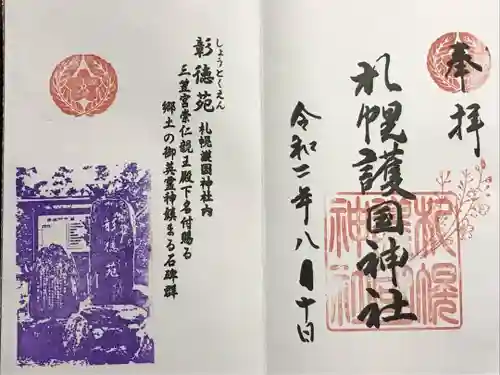 奉拝
札幌護国神社
令和二年八月十日
札幌護國神社
しょうとくえん
彰徳苑 札幌護国神社内
三笠宮崇仁親王殿下名付賜る
郷土の御英霊神鎮まる石碑群
彰徳苑